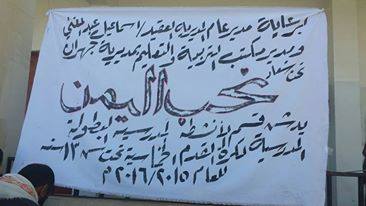 برعاية مدير عام المديرية العقيد/ اسماعيل عبدالمغني
ومدير مكتب التربية والتعليم بمديرية جهران
تحت شعار
نحب اليمن
يدشن قسم الأنشطة المدرسية البطولة
المدرسية لكرة القدم الخماسية تحت سن ١٣ سنة
للعام ٢٠١٥/٢٠١٦م